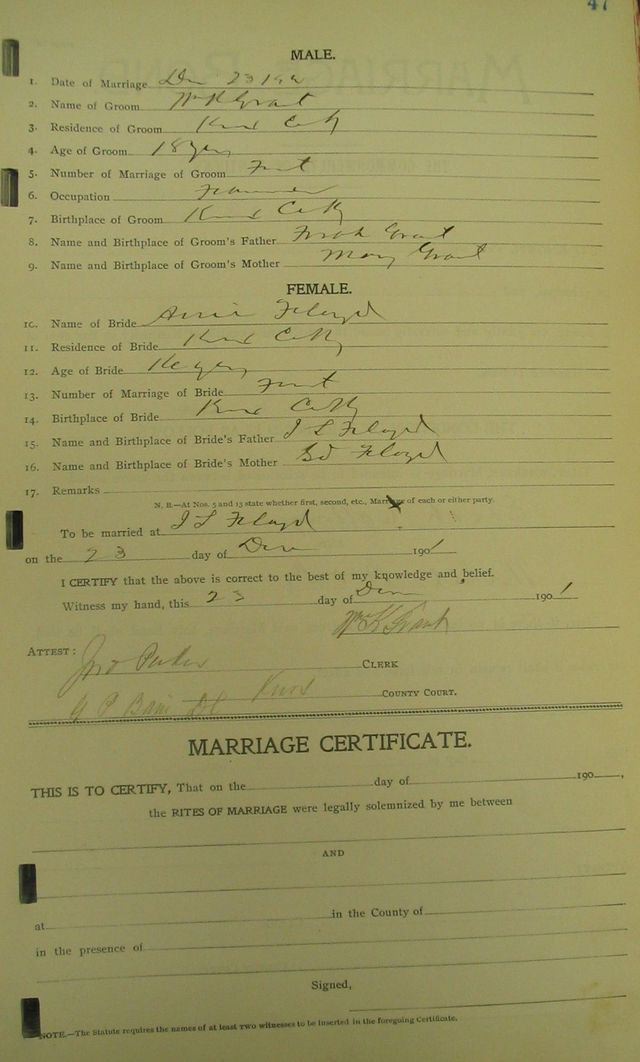 47
MALE.
1. Date of Marriage Dec 23 190
2. Name of Groom Wm K Grant
3. Residence of Groom Knox Co Ky
4. Age of Groom 18 yrs
5. Number of Marriage of Groom First
6. Occupation Farmer
7. Birthplace of Groom Knox Co Ky
8. Name and Birthplace of Groom's Father Grant
9. Name and Birthplace of Groom's Mother Mary Grant
FEMALE.
10. Name of Bride Floyd
11. Residence of Bride Knox Co Ky
12. Age of Bride yrs
13. Number of Marriage of Bride First
14. Birthplace of Bride Knox Co Ky
15. Name and Birthplace of Bride's Father J L Floyd
16. Name and Birthplace of Bride's Mother Floyd
17. Remarks
N. B.—At Nos. 5 and 13 state whether first, second, etc., Marriage of each or either party.
To be married at J L Floyd
on the 23 day of Dec 1901
I CERTIFY that the above is correct to the best of my knowledge and belief.
Witness my hand, this 23 day of Dec 1901
Wm K Grant
ATTEST: Jno Parker CLERK
Knox COUNTY COURT.
MARRIAGE CERTIFICATE.
THIS IS TO CERTIFY, That on the day of 190 ,
the RITES OF MARRIAGE were legally solemnized by me between
AND
at in the County of
in the presence of
Signed,
NOTE.—The Statute requires the names of at least two witnesses to be inserted in the foregoing Certificate.